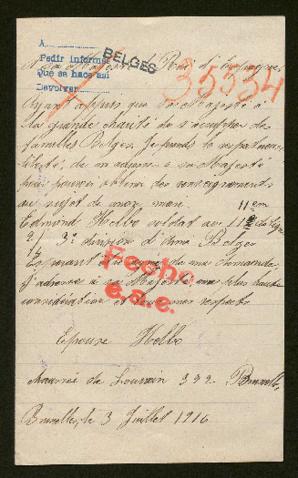 A
Pedir informes
Que se hace así
Devolver
BELGES
35534
A sa Majesté Roi d'Espagne
Ayant appris que sa Majesté a
la grande charité de s'occuper de
familles Belges. Je prends la respectueuse
liberté, de m'adresser à sa Majesté
pour pouvoir obtenir des renseignements
au sujet de mon mari.
11em
Edmond Hebbe soldat au 11e de ligne
3e division d'armée Belge
Espérant de ma demande
J'adresse à sa Majesté ma plus haute
considération et mes respects
Fecho
e.a.c.
Epouse Hebbe
Chaussée de Louvain 392. Bruxelles
Bruxelles, le 3 Juillet 1916